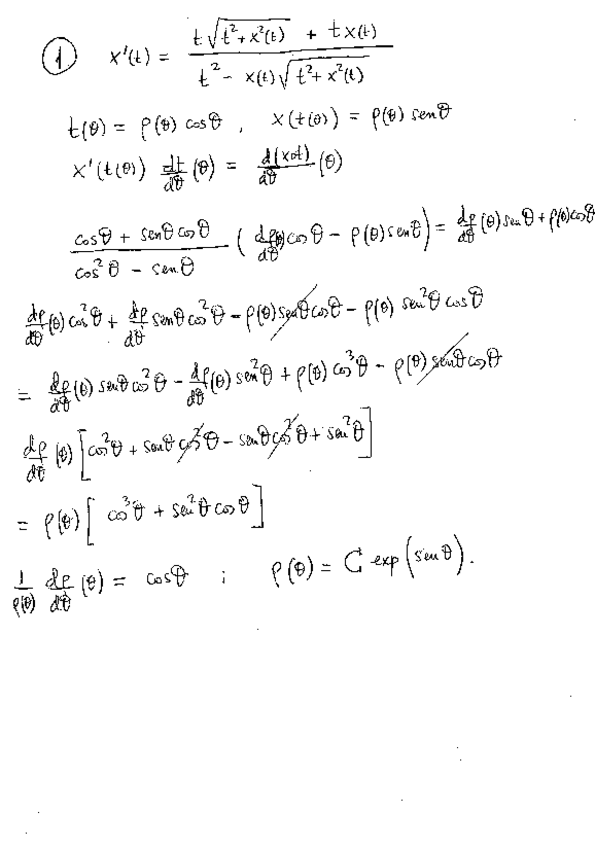 ① x'(t) = (t √(t² + x²(t)) + t x(t)) / (t² - x(t) √(t² + x²(t)))
t(θ) = ρ(θ) cos θ , x(t(θ)) = ρ(θ) sen θ
x'(t(θ)) dt/dθ (θ) = d(x∘t)/dθ (θ)
(cos θ + sen θ cos θ) / (cos² θ - sen θ) ( dρ/dθ (θ) cos θ - ρ(θ) sen θ ) = dρ/dθ (θ) sen θ + ρ(θ) cos θ
dρ/dθ (θ) cos² θ + dρ/dθ sen θ cos² θ - ρ(θ) sen θ cos θ - ρ(θ) sen² θ cos θ
= dρ/dθ (θ) sen θ cos² θ - dρ/dθ (θ) sen² θ + ρ(θ) cos³ θ - ρ(θ) sen θ cos θ
dρ/dθ (θ) [ cos² θ + sen θ cos² θ - sen θ cos² θ + sen² θ ]
= ρ(θ) [ cos³ θ + sen² θ cos θ ]
1/ρ(θ) dρ/dθ (θ) = cos θ ; ρ(θ) = C exp (sen θ).